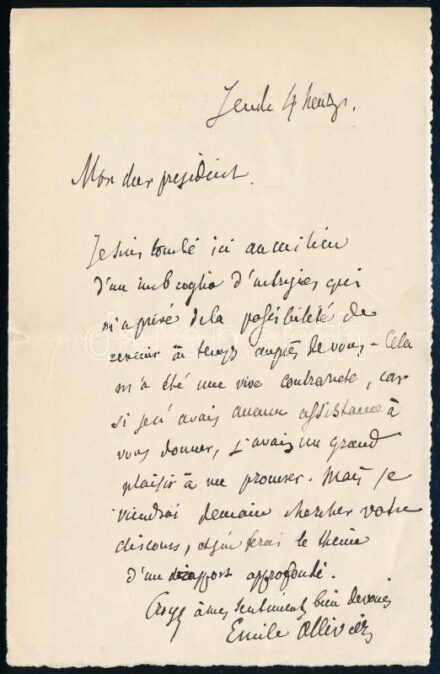 Jeudi 4 heures.
Mon cher président,
Je suis tombé ici au milieu
d'un imbroglio d'intrigues qui
m'a privé de la possibilité de
revenir à temps auprès de vous. Cela
m'a été une vive contrariété, car
si je n'avais aucune assistance à
vous donner, j'avais un grand
plaisir à me procurer. Mais je
viendrai demain chercher votre
discours, et j'en ferai le thème
d'un rapport approfondi.
Croyez à mes sentiments bien dévoués
Emile Ollivier